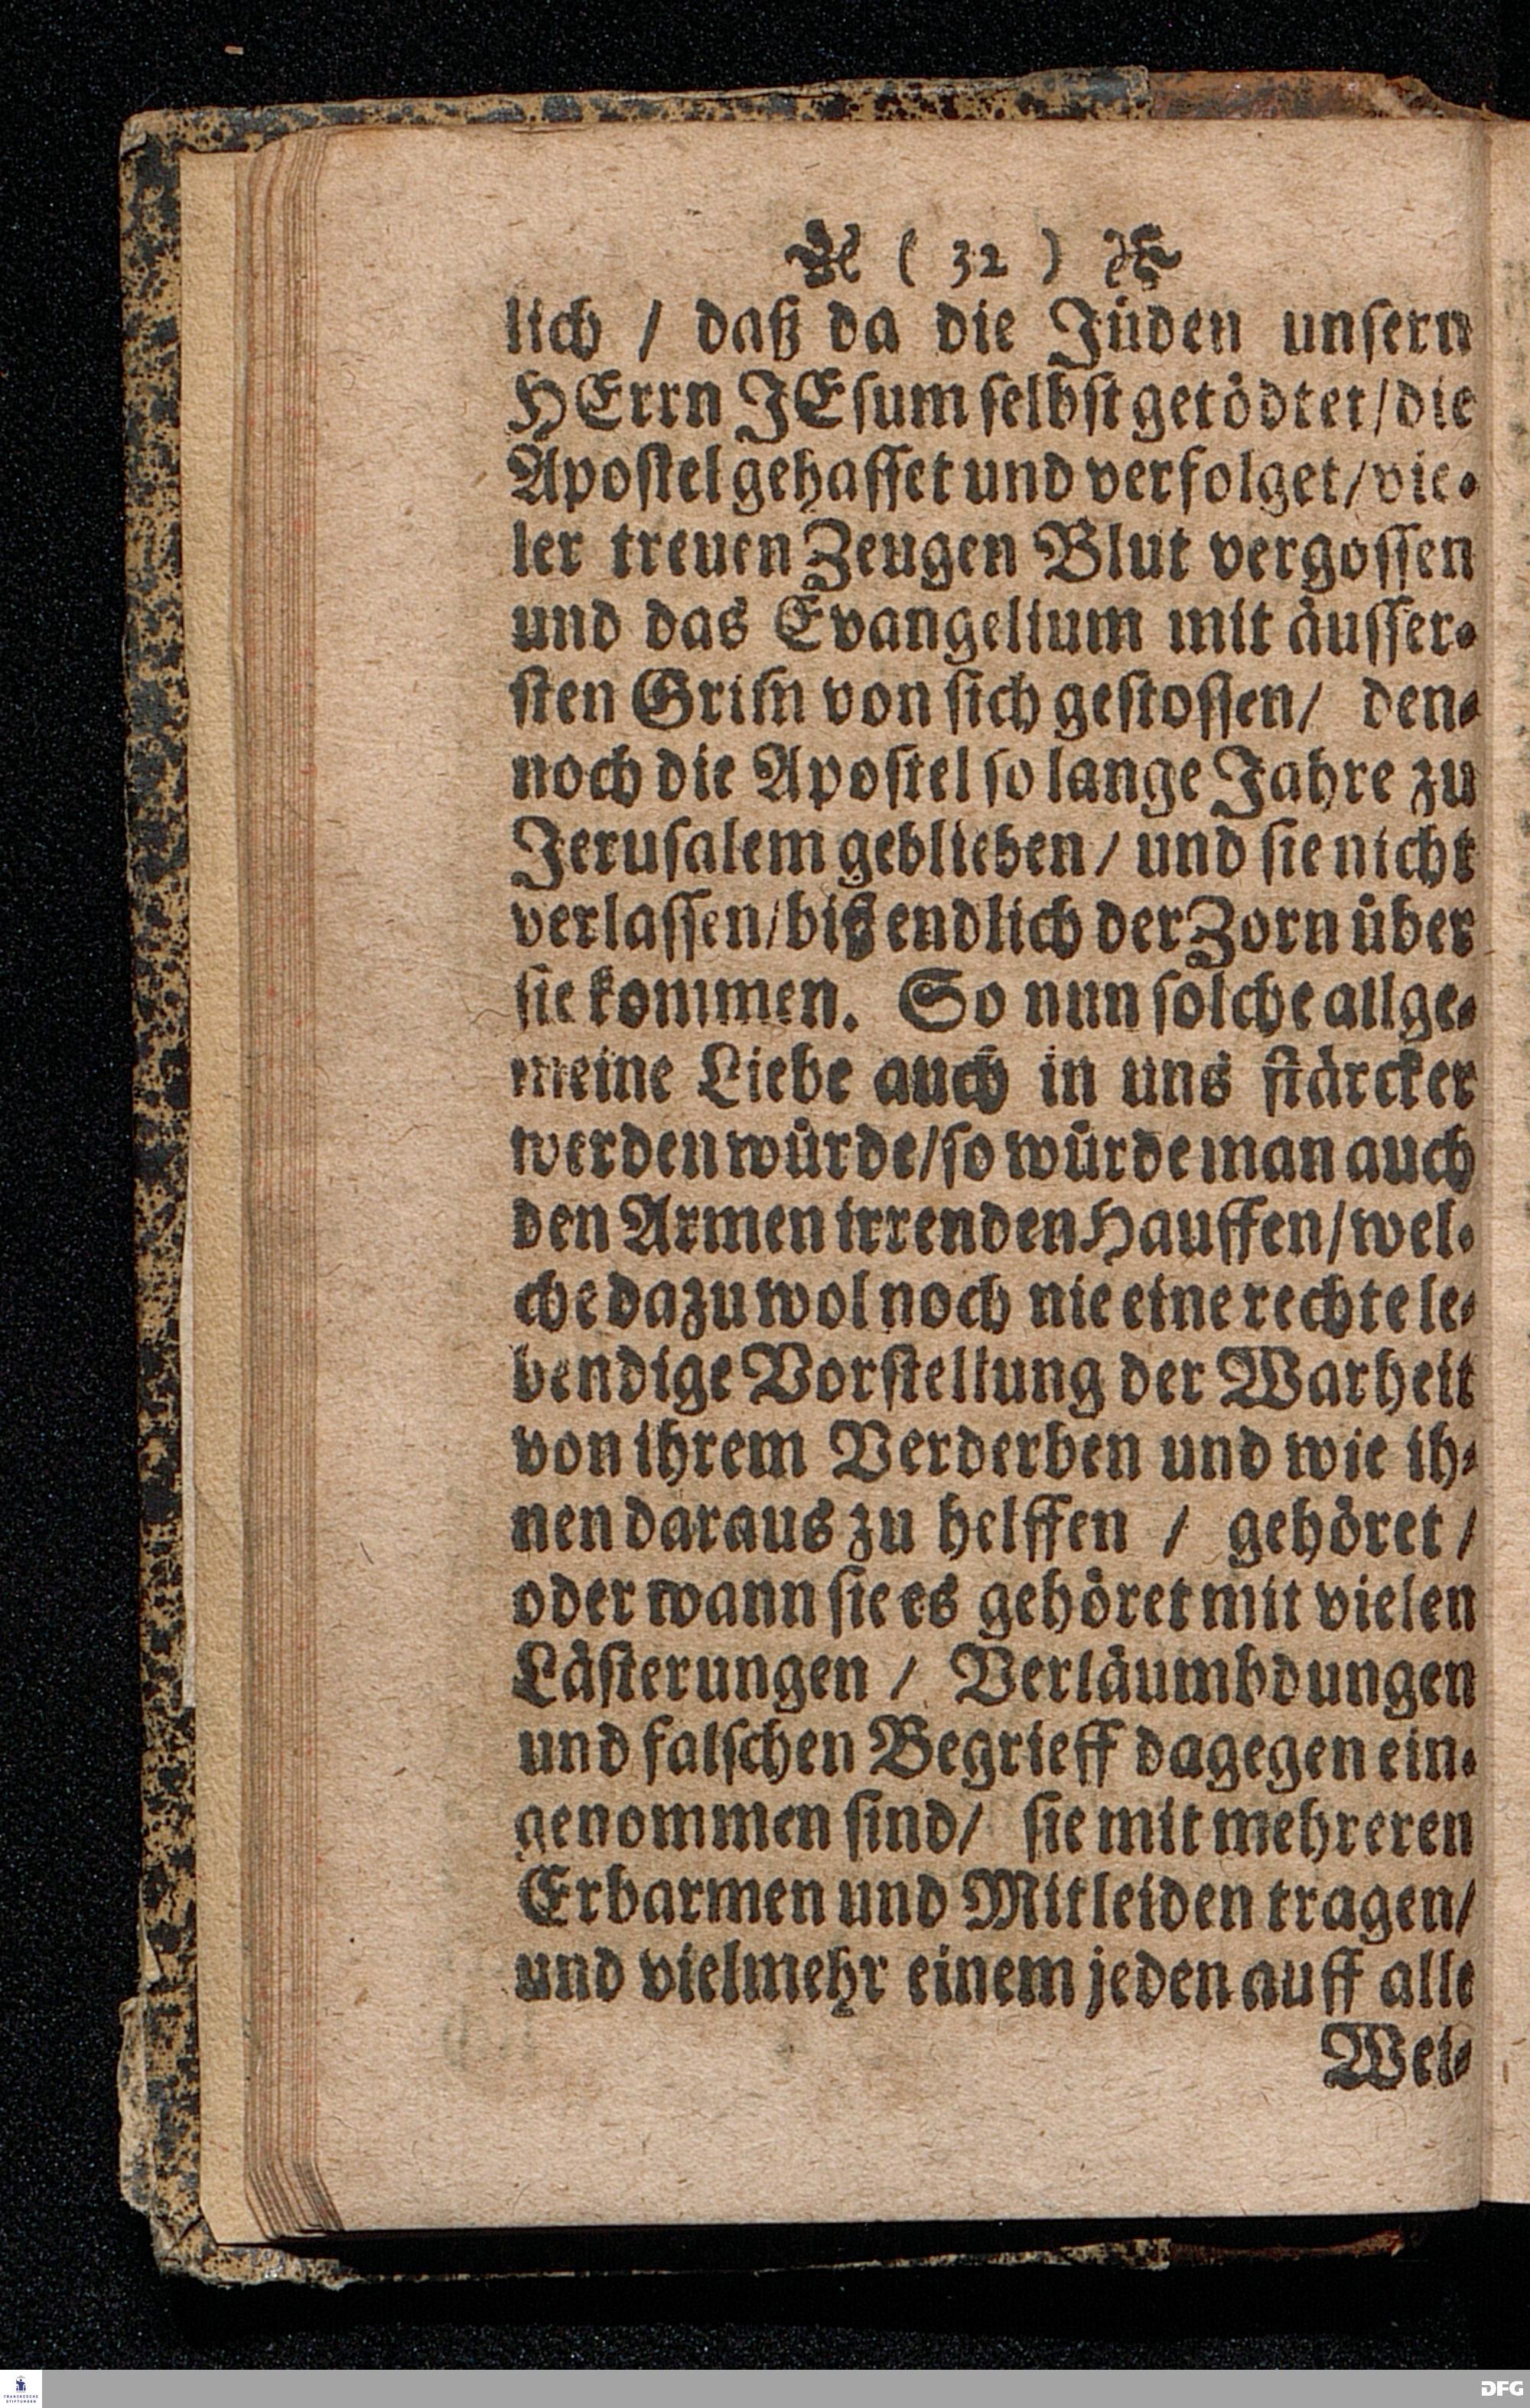 ( 32 )
lich / daß da die Jüden unsern
HErrn JEsum selbst getödtet/die
Apostel gehasset und verfolget/vie-
ler treuen Zeugen Blut vergossen
und das Evangelium mit äusser-
sten Grim̃ von sich gestossen/ den-
noch die Apostel so lange Jahre zu
Jerusalem geblieben/ und sie nicht
verlassen/biß endlich der Zorn über
sie kommen. So nun solche allge-
meine Liebe auch in uns stärcker
werden würde/so würde man auch
den Armen irrenden Hauffen/wel-
che dazu wol noch nie eine rechte le-
bendige Vorstellung der Warheit
von ihrem Verderben und wie ih-
nen daraus zu helffen / gehöret /
oder wann sie es gehöret mit vielen
Lästerungen / Verläumbdungen
und falschen Begrieff dagegen ein-
genommen sind/ sie mit mehreren
Erbarmen und Mitleiden tragen/
und vielmehr einem jeden auff alle
Wei-
FRANCKESCHE
STIFTUNGEN
DFG